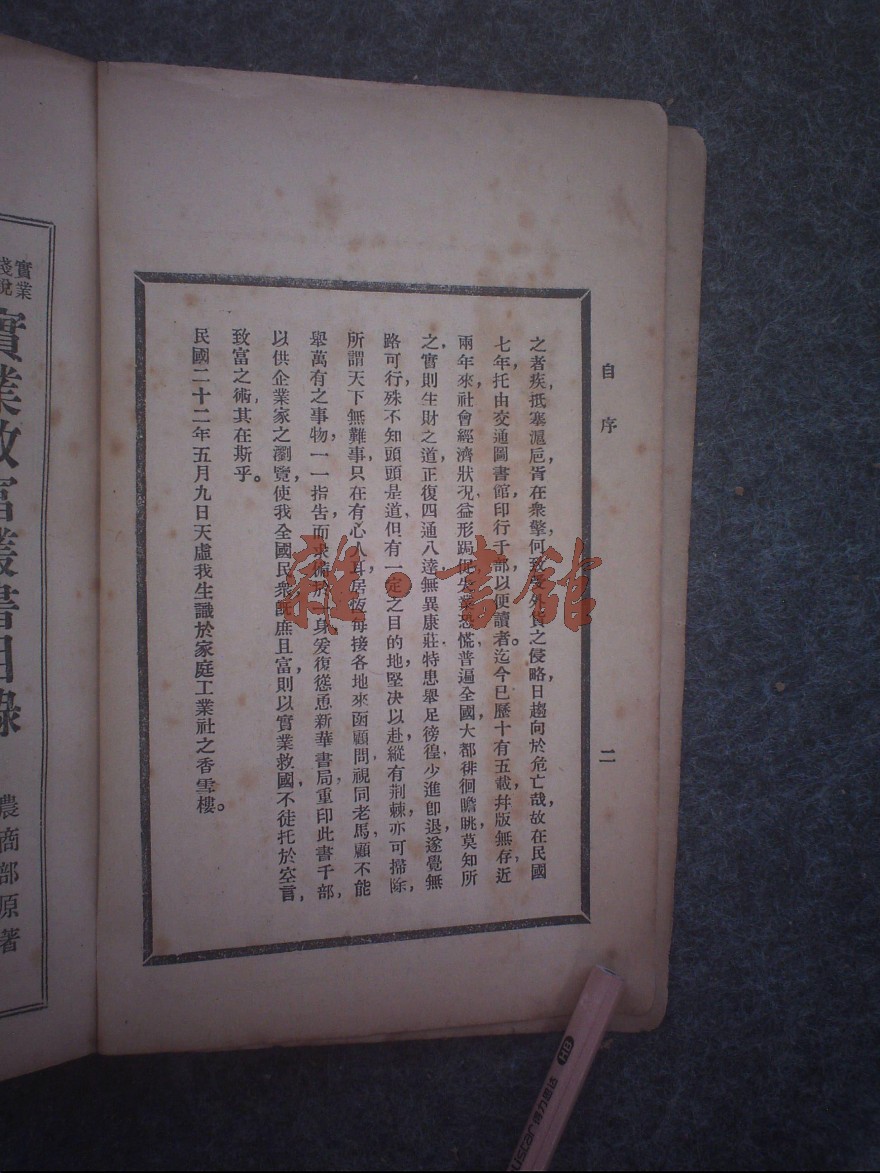 自序
二
之者疾,抵塞漏巵,責在衆擎,何致受外貨之侵略,日趨向於危亡哉,故在民國
七年,托由交通圖書館,印行千部,以便讀者。迄今已歷十有五載,幷版無存,近
兩年來,社會經濟狀況,益形跼促,失業恐慌,普遍全國,大都徘徊瞻眺,莫知所
之,實則生財之道,正復四通八達,無異康莊,特患舉足徬徨,少進卽退,遂覺無
路可行,殊不知頭頭是道,但有一定之目的地,堅决以赴,縱有荆棘,亦可掃除,
所謂天下無難事,只在有心人耳,居恆每接各地來函顧問,視同老馬,顧不能
舉萬有之事物,一一指告,而求備於一身,爰復慫恿新華書局,重印此書千部,
以供企業家之瀏覽,使我全國民衆,旣庶且富,則以實業救國,不徒托於空言,
致富之術,其在斯乎。
民國二十二年五月九日天虛我生識於家庭工業社之香雪樓。
實業
淺說
實業致富叢書目錄
農商部原著
雜·書館
HB